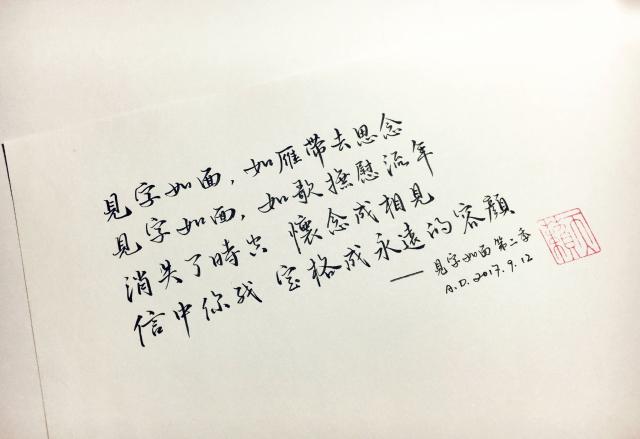 見字如面，如雁带去思念
見字如面，如歌撫慰流年
消失了時空 懷念成相見
信中你我 定格成永遠的容顔
—— 見字如面 第二季
A.D. 2017.9.12